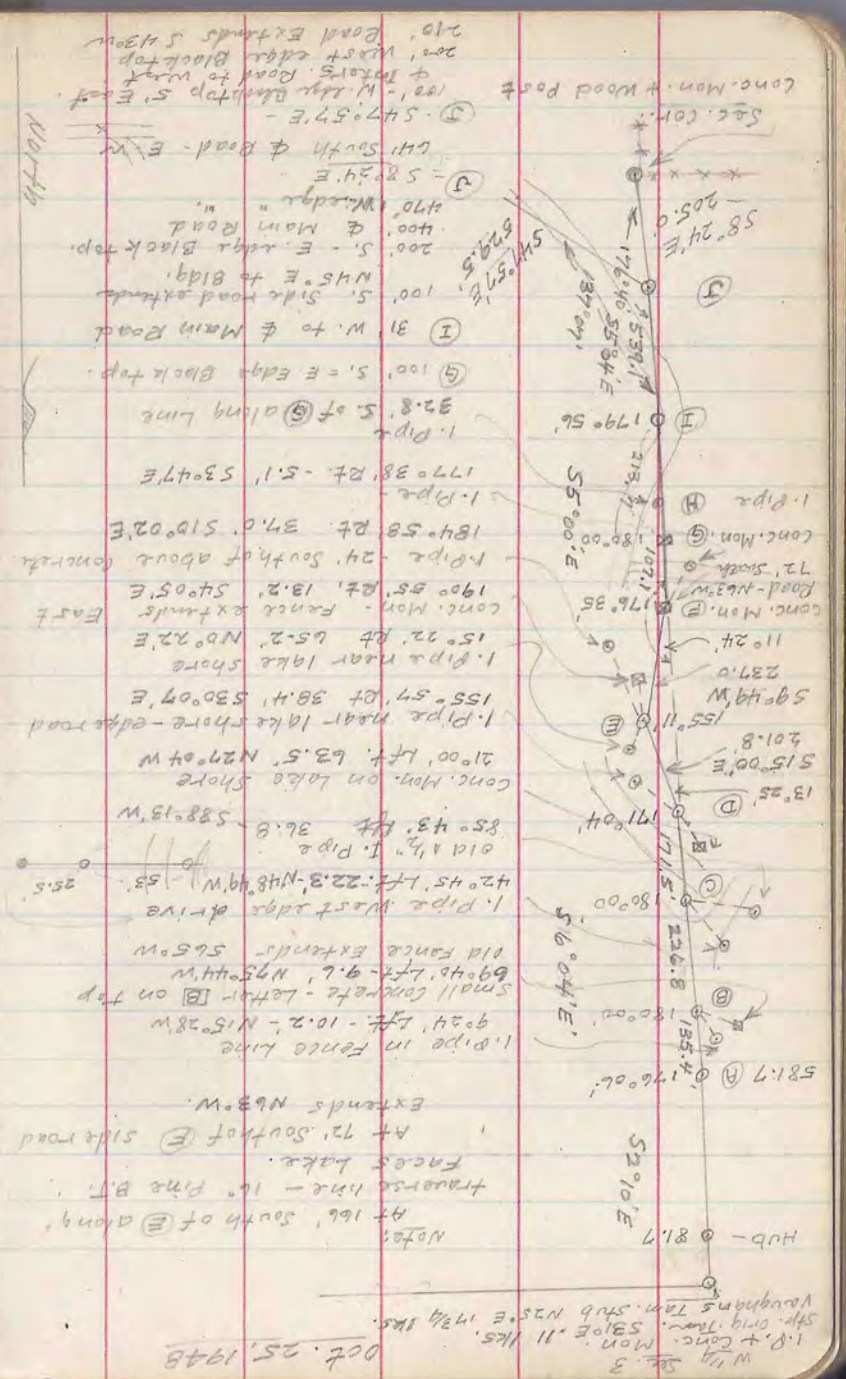 Oct. 25, 1948
W 1/4 Sec. 3
I.P. + Conc. Mon.
Stp. Orig. Tam. S31°E .11 lks.
Vaughans Tam. Stub N25°E 17 3/4 lks.
Hub - 81.7
S2°10'E
Note:
At 166' South of (E) along
traverse line - 16" Pine B.T.
Faces Lake.
At 72' South of (E) side road
Extends N63°W.
581.7 (A) 176°06'
1. Pipe in Fence Line
9°24' Lft. - 10.2' - N15°28'W
135.4'
(B) 180°00'
Small Concrete - Letter [B] on top
69°40' Lft - 9.6' N75°44'W
Old Fence Extends S65°W
226.8
S6°04'E
(C) 180°00
1. Pipe West edge drive
42°45' Lft. - 22.3' - N48°49'W
53'
25.5'
Old 1 1/2" I. Pipe
85°43' Lft 36.8 - S88°13'W
171.5'
171°04'
(D)
13°25'
S15°00'E
201.8'
Conc. Mon. on Lake Shore
21°00' Lft. 63.5' N27°04'W
1. Pipe near lake shore - edge road
155°57' Rt 38.4' S30°07'E
(E) 155°11'
S9°49'W
237.0
11°24'
1. Pipe near lake shore
15°22' Rt 65.2' N0°22'E
Conc. Mon. - Fence extends East
190°55' Rt. 13.2' S4°05'E
Conc. Mon. (F) 176°35'
Road - N63°W
72' South
107.1'
1. Pipe - 24' South of above Concrete
184°58' Rt. 37.0' S10°02'E
Conc. Mon. (G) 180°00'
S5°00'E
1. Pipe (H)
1. Pipe -
177°38' Rt. - 5.1' S3°47'E
213.4'
1. Pipe
32.8' S. of (G) along Line
(I) 179°56'
(G) 100' S. = E Edge Black top.
(I) 31' W. to ℄ Main Road
100' S. Side road extends
N45°E to Bldg.
200' S. - E. edge Black top.
400' ℄ Main Road
470' W. edge " ".
539.1'
S5°04'E
176°40'
137°07'
(J)
S47°57'E
529.5'
(J) = S8°24'E
641' South ℄ Road - E-W
S8°24'E
205.0'
(J) - S47°57'E -
100' - W. edge Blacktop 5' East.
℄ Inters. Road to West
200' West edge Black top
210' Road Extends S43°W
Sec. Cor.
Conc. Mon. + Wood Post
North